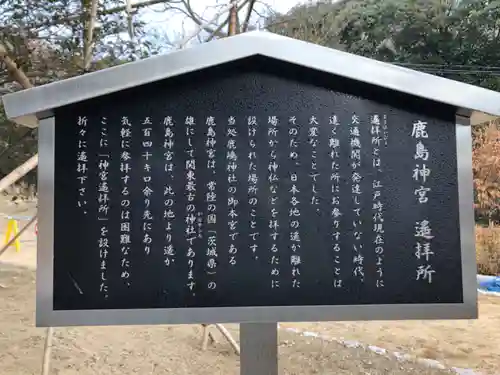 鹿島神宮 遥拝所
ようはいじょ
遥拝所とは、江戸時代現在のように
交通機関が発達していない時代、
遠く離れた所にお参りすることは
大変なことでした。
そのため、日本各地の遥か離れた
場所から神仏などを拝するために
設けられた場所のことです。
当処鹿嶋神社の御本宮である
鹿島神宮は、常陸の国「茨城県」の
雄にして関東最古の神社であります。
鹿島神宮は、此の地より遥か
五百四十キロ余り先にあり
気軽に参拝するのは困難なため、
ここに「神宮遥拝所」を設けました。
折々に遥拝下さい。